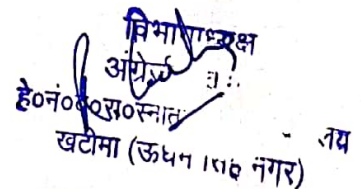 विभागाध्यक्ष
अंग्रेजी
हे०नं०ब०रा०स्नात
खटीमा (ऊधम सिंह नगर)